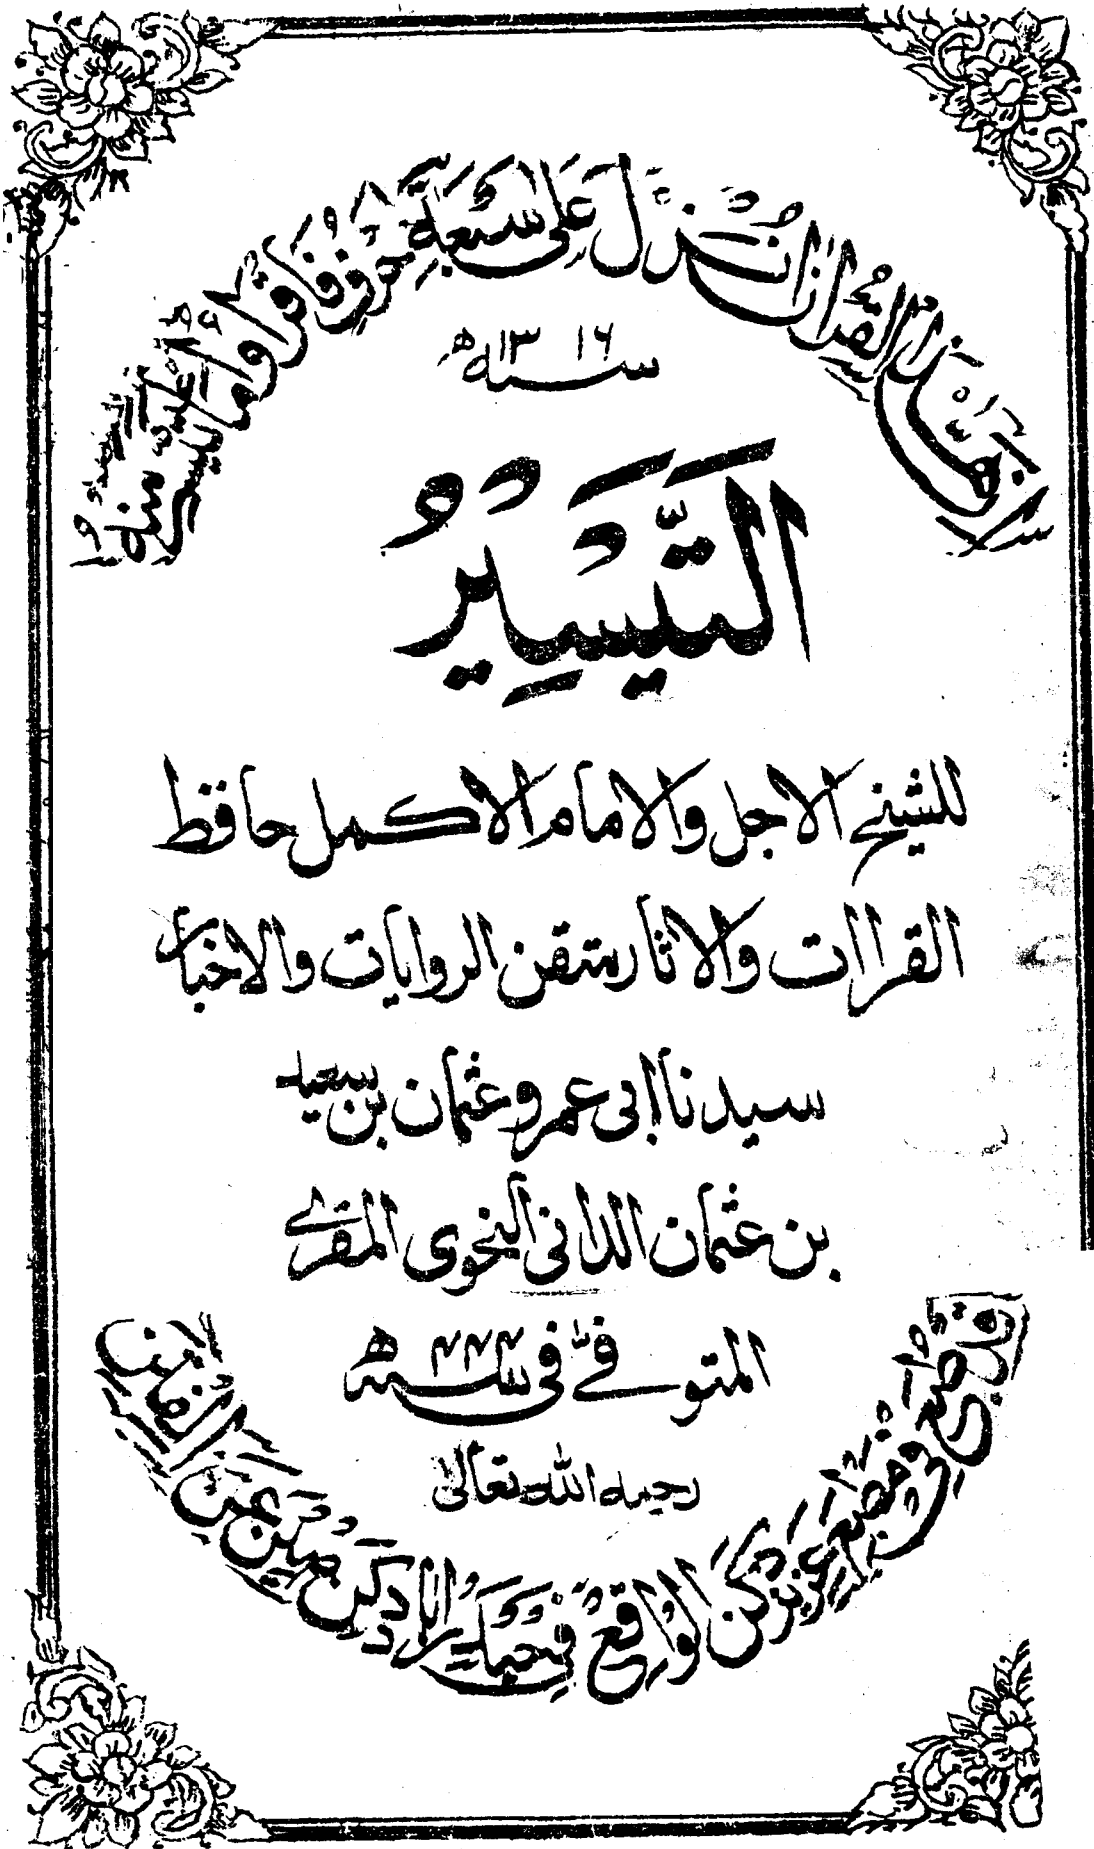 ان هذا القرآن نزل على سبعة احرف فاقرأوا ما تيسر منه
سنه ١٣١٦ ه
التَّيْسِيرُ
للشيخ الاجل والامام الاكمل حافظ
القراات والاثار متقن الروايات والاخبار
سيدنا ابى عمرو عثمان بن سعيد
بن عثمان الدانى النحوى المقرى
المتوفى فى سنه ٤٤٤ ه
رحمه الله تعالى
قد طبع فى مطبع عزيز دكن الواقع فى حيدراباد دكن صين عن الفتن